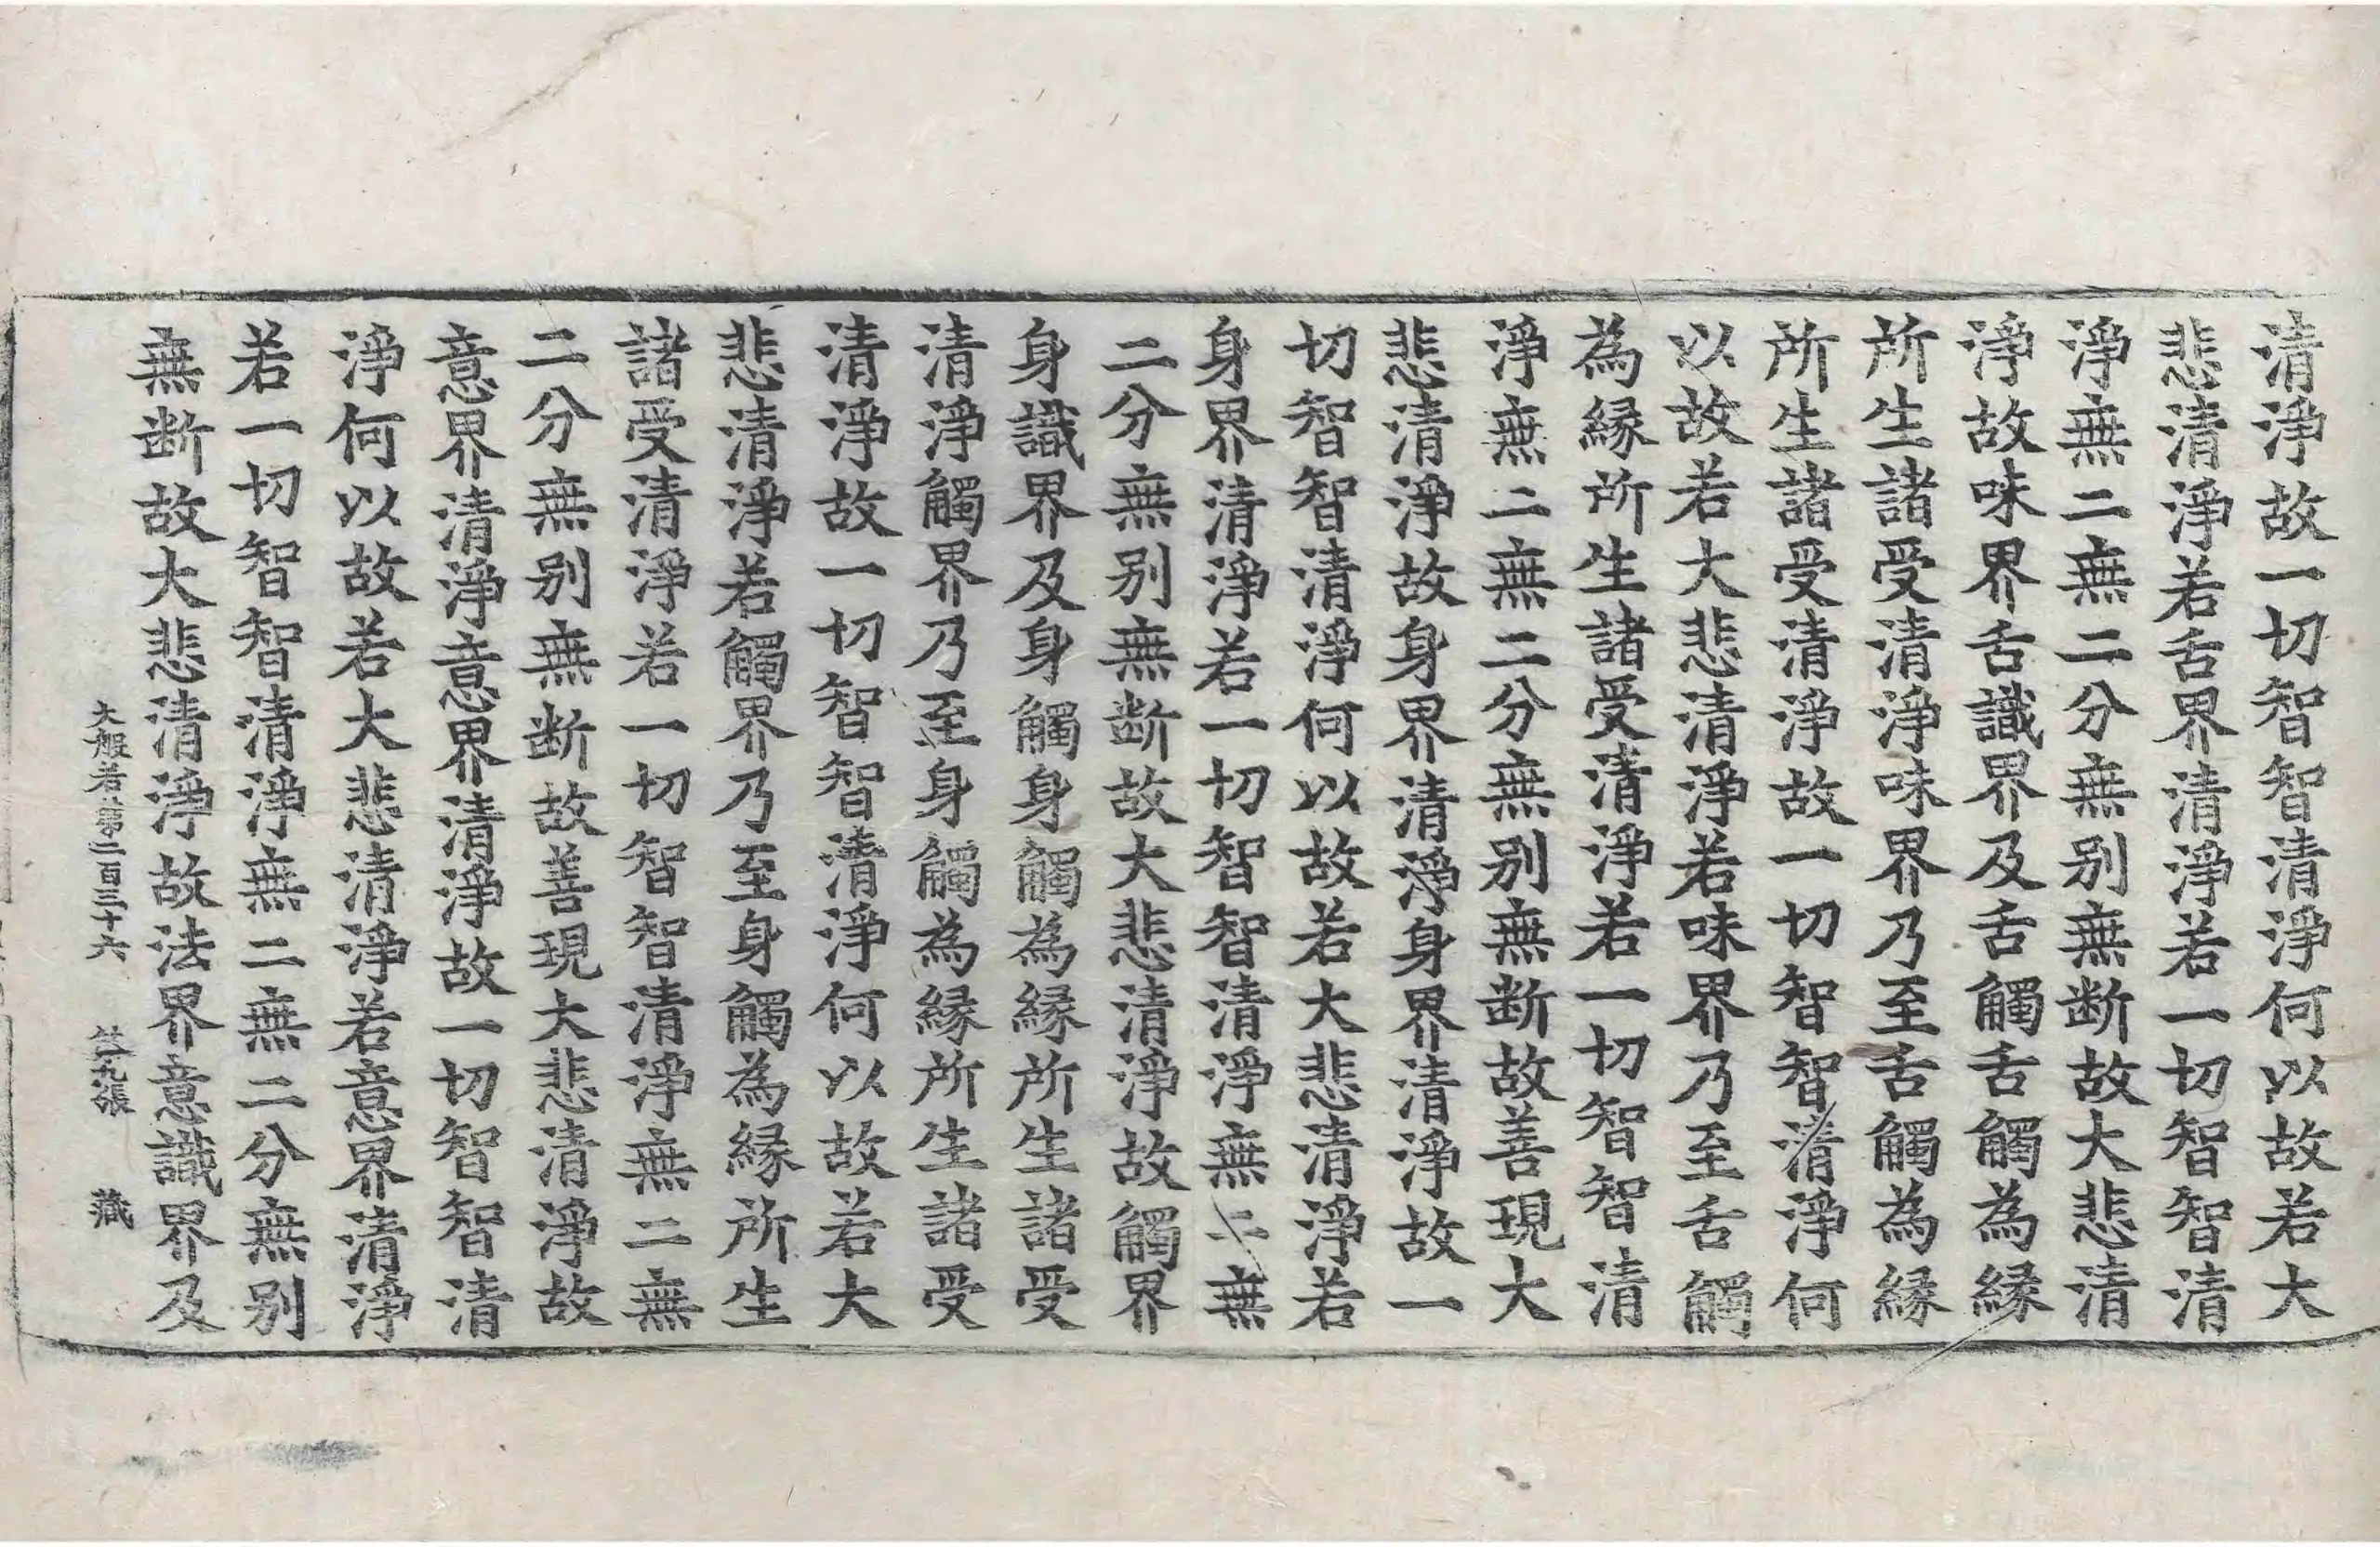 清淨故一切智智清淨何以故若大
悲清淨若舌界清淨若一切智智清
淨無二無二分無別無斷故大悲清
淨故味界舌識界及舌觸舌觸為緣
所生諸受清淨味界乃至舌觸為緣
所生諸受清淨故一切智智清淨何
以故若大悲清淨若味界乃至舌觸
為緣所生諸受清淨若一切智智清
淨無二無二分無別無断故善現大
悲清淨故身界清淨身界清淨故一
切智智清淨何以故若大悲清淨若
身界清淨若一切智智清淨無二無
二分無別無断故大悲清淨故觸界
身識界及身觸身觸為緣所生諸受
清淨觸界乃至身觸為緣所生諸受
清淨故一切智智清淨何以故若大
悲清淨若觸界乃至身觸為緣所生
諸受清淨若一切智智清淨無二無
二分無別無断故善現大悲清淨故
意界清淨意界清淨故一切智智清
淨何以故若大悲清淨若意界清淨
若一切智智清淨無二無二分無別
無断故大悲清淨故法界意識界及
大般若第二百三十六 第九張 藏